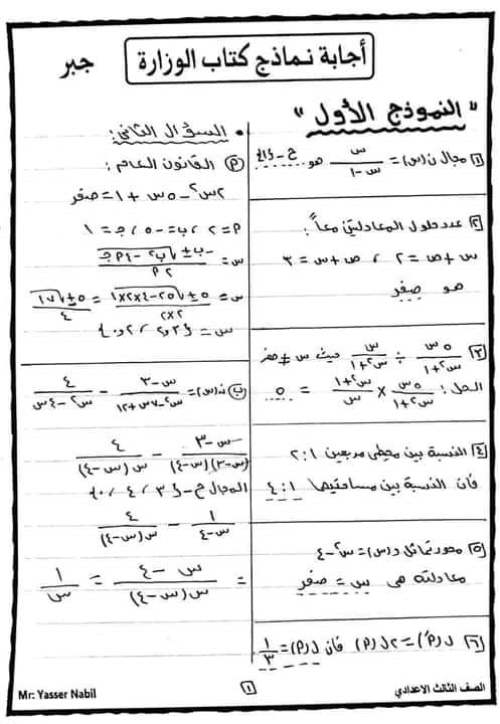 أجابة نماذج كتاب الوزارة
جبر
"النموذج الأول"
[١] مجال ن(س) = س/(س-١) هو ح-{١}
[٢] عدد حلول المعادلتين معاً:
س+ص=٢ ، ص+س=٣
هو صفر
[٣] ٥س/(س٢+١) ÷ س/(س٢+١) حيث س≠صفر
الحل: ٥س/(س٢+١) × (س٢+١)/س = ٥
[٤] النسبة بين محيطى مربعين ١:٢
فأن النسبة بين مساحتيهما ١:٤
[٥] محور تماثل د(س)=س٢-٤
معادلته هى س = صفر
[٦] ل(P َ)=٢ل(P) فأن ل(P)=١/٣
• السؤال الثانى:
(P) القانون العام:
٢س٢-٥س+١=صفر
P=٢ ، ب=-٥ ، ج=١
س= (-ب±√(ب٢-٤Pج))/٢P
س= (٥±√(٢٥-٤×٢×١))/(٢×٢) = (٥±√١٧)/٤
س={٢,٣ ، ٠,٢}
(ب) ن(س)= (س-٣)/(س٢-٧س+١٢) - ٤/(س٢-٤س)
(س-٣)/((س-٣)(س-٤)) - ٤/(س(س-٤))
المجال ح-{٣ ، ٤ ، ٠}
١/(س-٤) - ٤/(س(س-٤))
= (س-٤)/(س(س-٤)) = ١/س
الصف الثالث الاعدادي
١
Mr: Yasser Nabil